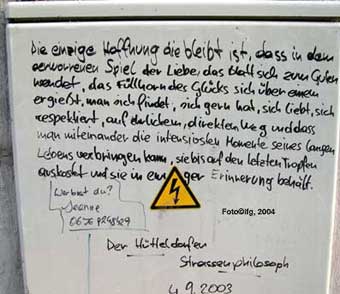 Die einzige Hoffnung die bleibt ist, dass in dem
verworrenen Spiel der Liebe, das Blatt sich zum Guten
wendet, das Füllhorn des Glücks sich über einem
ergießt, man sich findet, sich gern hat, sich liebt, sich
respektiert, auf ehrlichem, direktem Weg und dass
man miteinander die intensivsten Momente seines langen
Lebens verbringen kann, sie bis auf den letzten Tropfen
auskostet und sie in ewiger Erinnerung behält.
Wer bist du?
Foto©lfg, 2004
Der Hütteldorfer
Strassenphilosoph
4.9.2003